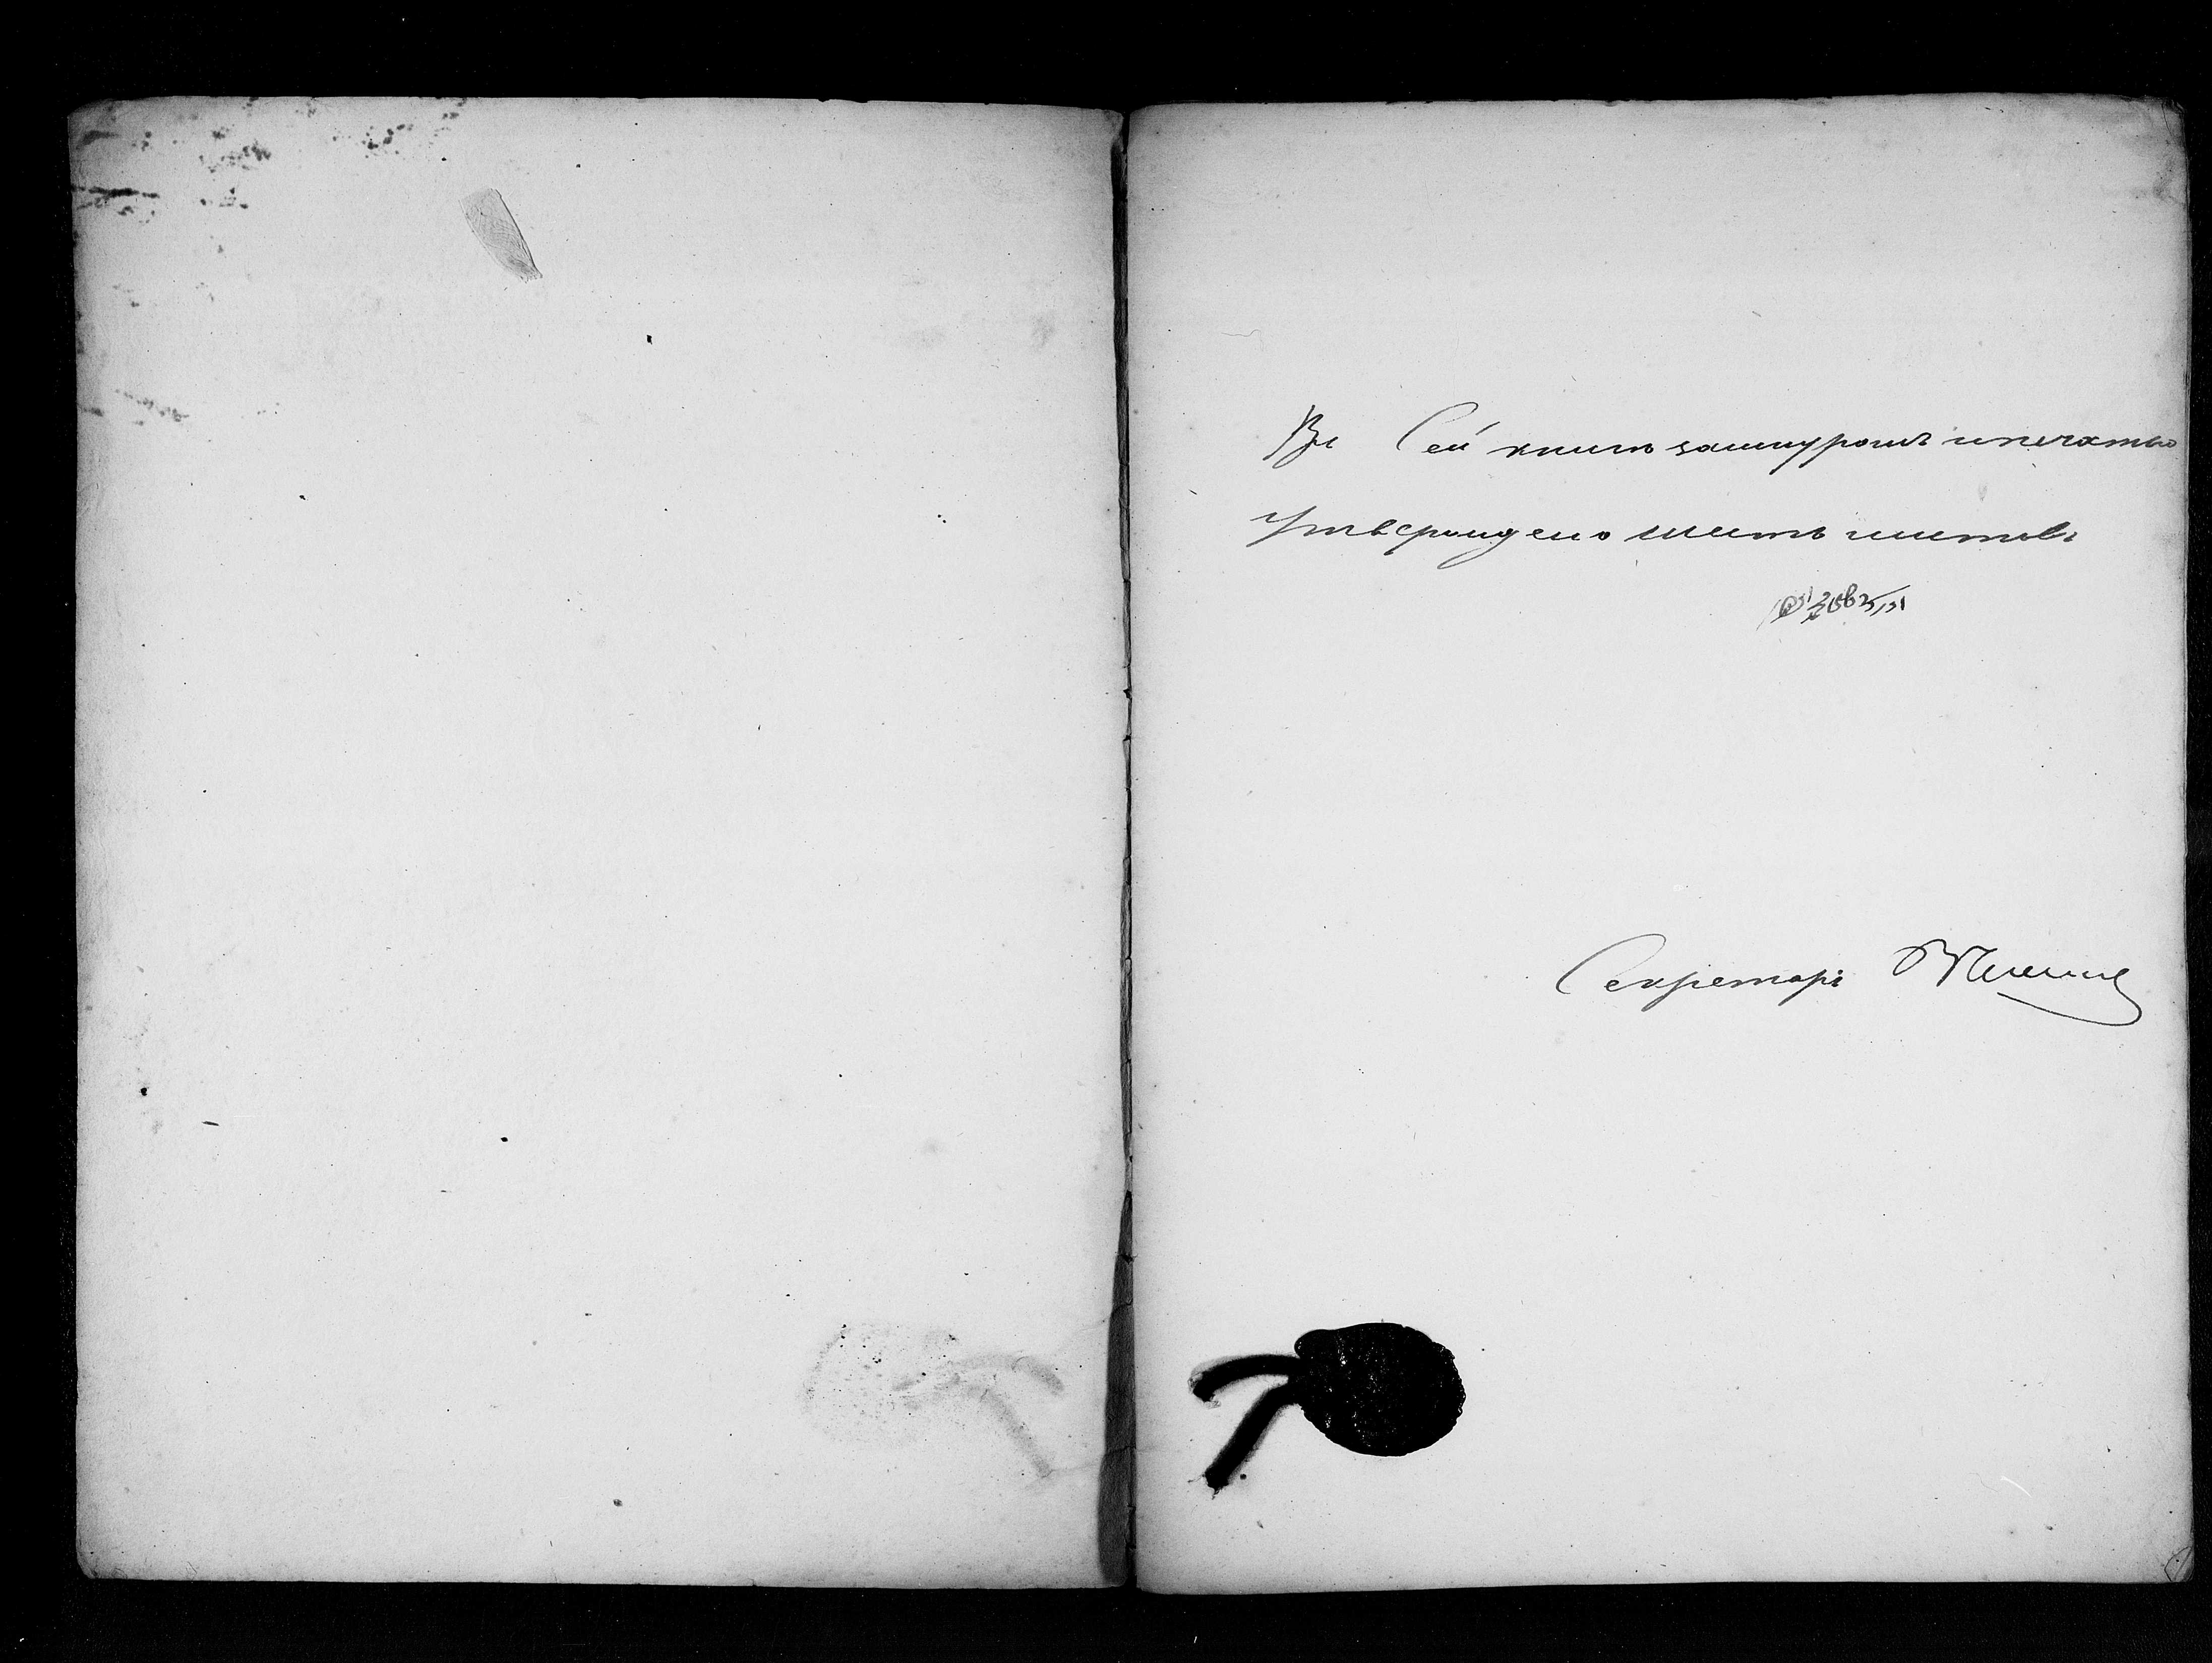 Въ Сей книгѣ зашнуровано и печатью
утверждено шесть листовъ
Секретарь